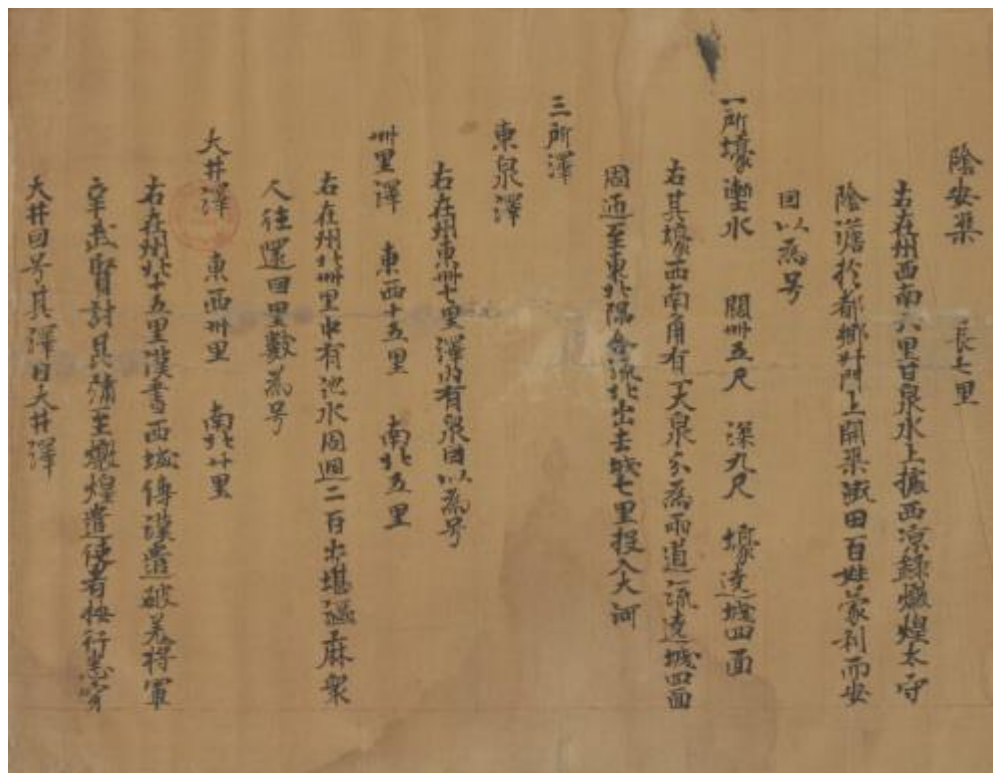 陰安渠　長七里
右在州西南六里甘泉水上據西涼錄燉煌太守
陰澹於都鄉斗門上開渠溉田百姓蒙利而安
因以為号
一所壕塹水　闊卌五尺　深九尺　壕遶城四面
右其壕西南角有一大泉分為兩道流遶城四面
周迊至東北隅合流北出去城七里投入大河
三所澤
東泉澤
右在州東卌七里澤內有泉因以為号
卌里澤　東西十五里　南北五里
右在州北卌里中有池水周迴二百步堪漚麻衆
人往還因里數為号
大井澤　東西卅里　南北廿里
右在州北十五里漢書西域傳漢遣破羌將軍
辛武賢討昆彌至燉煌遣使者按行悉穿
大井因号其澤曰大井澤